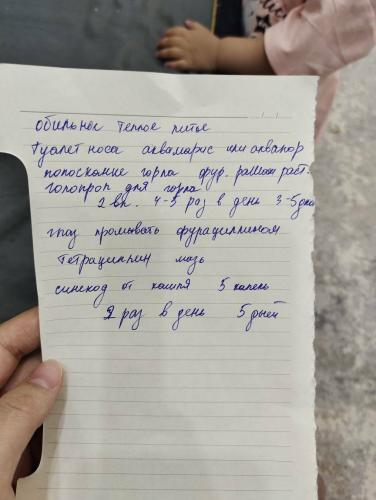 обильное теплое питье
туалет носа аквамарис или аквалор
полоскание горла фур.
гола для горла
2 вп. 4-5 раз в день 3-5 дня
глаз промывать фурациллином
тетрациклин мазь
синекод от кашля 5 капель
2 раз в день 5 дней